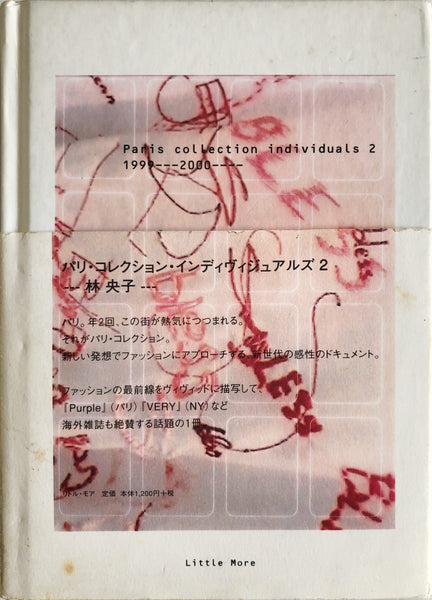 Paris collection individuals 2
1999---2000----
パリ・コレクション・インディヴィジュアルズ 2
--- 林 央子 ---
パリ。年2回、この街が熱気につつまれる。
それがパリ・コレクション。
新しい発想でファッションにアプローチする、新世代の感性のドキュメント。
ファッションの最前線をヴィヴィッドに描写して、
『Purple』（パリ）『VERY』（NY）など
海外雑誌も絶賛する話題の1冊。
リトル・モア 定価 本体1,200円+税
Little More